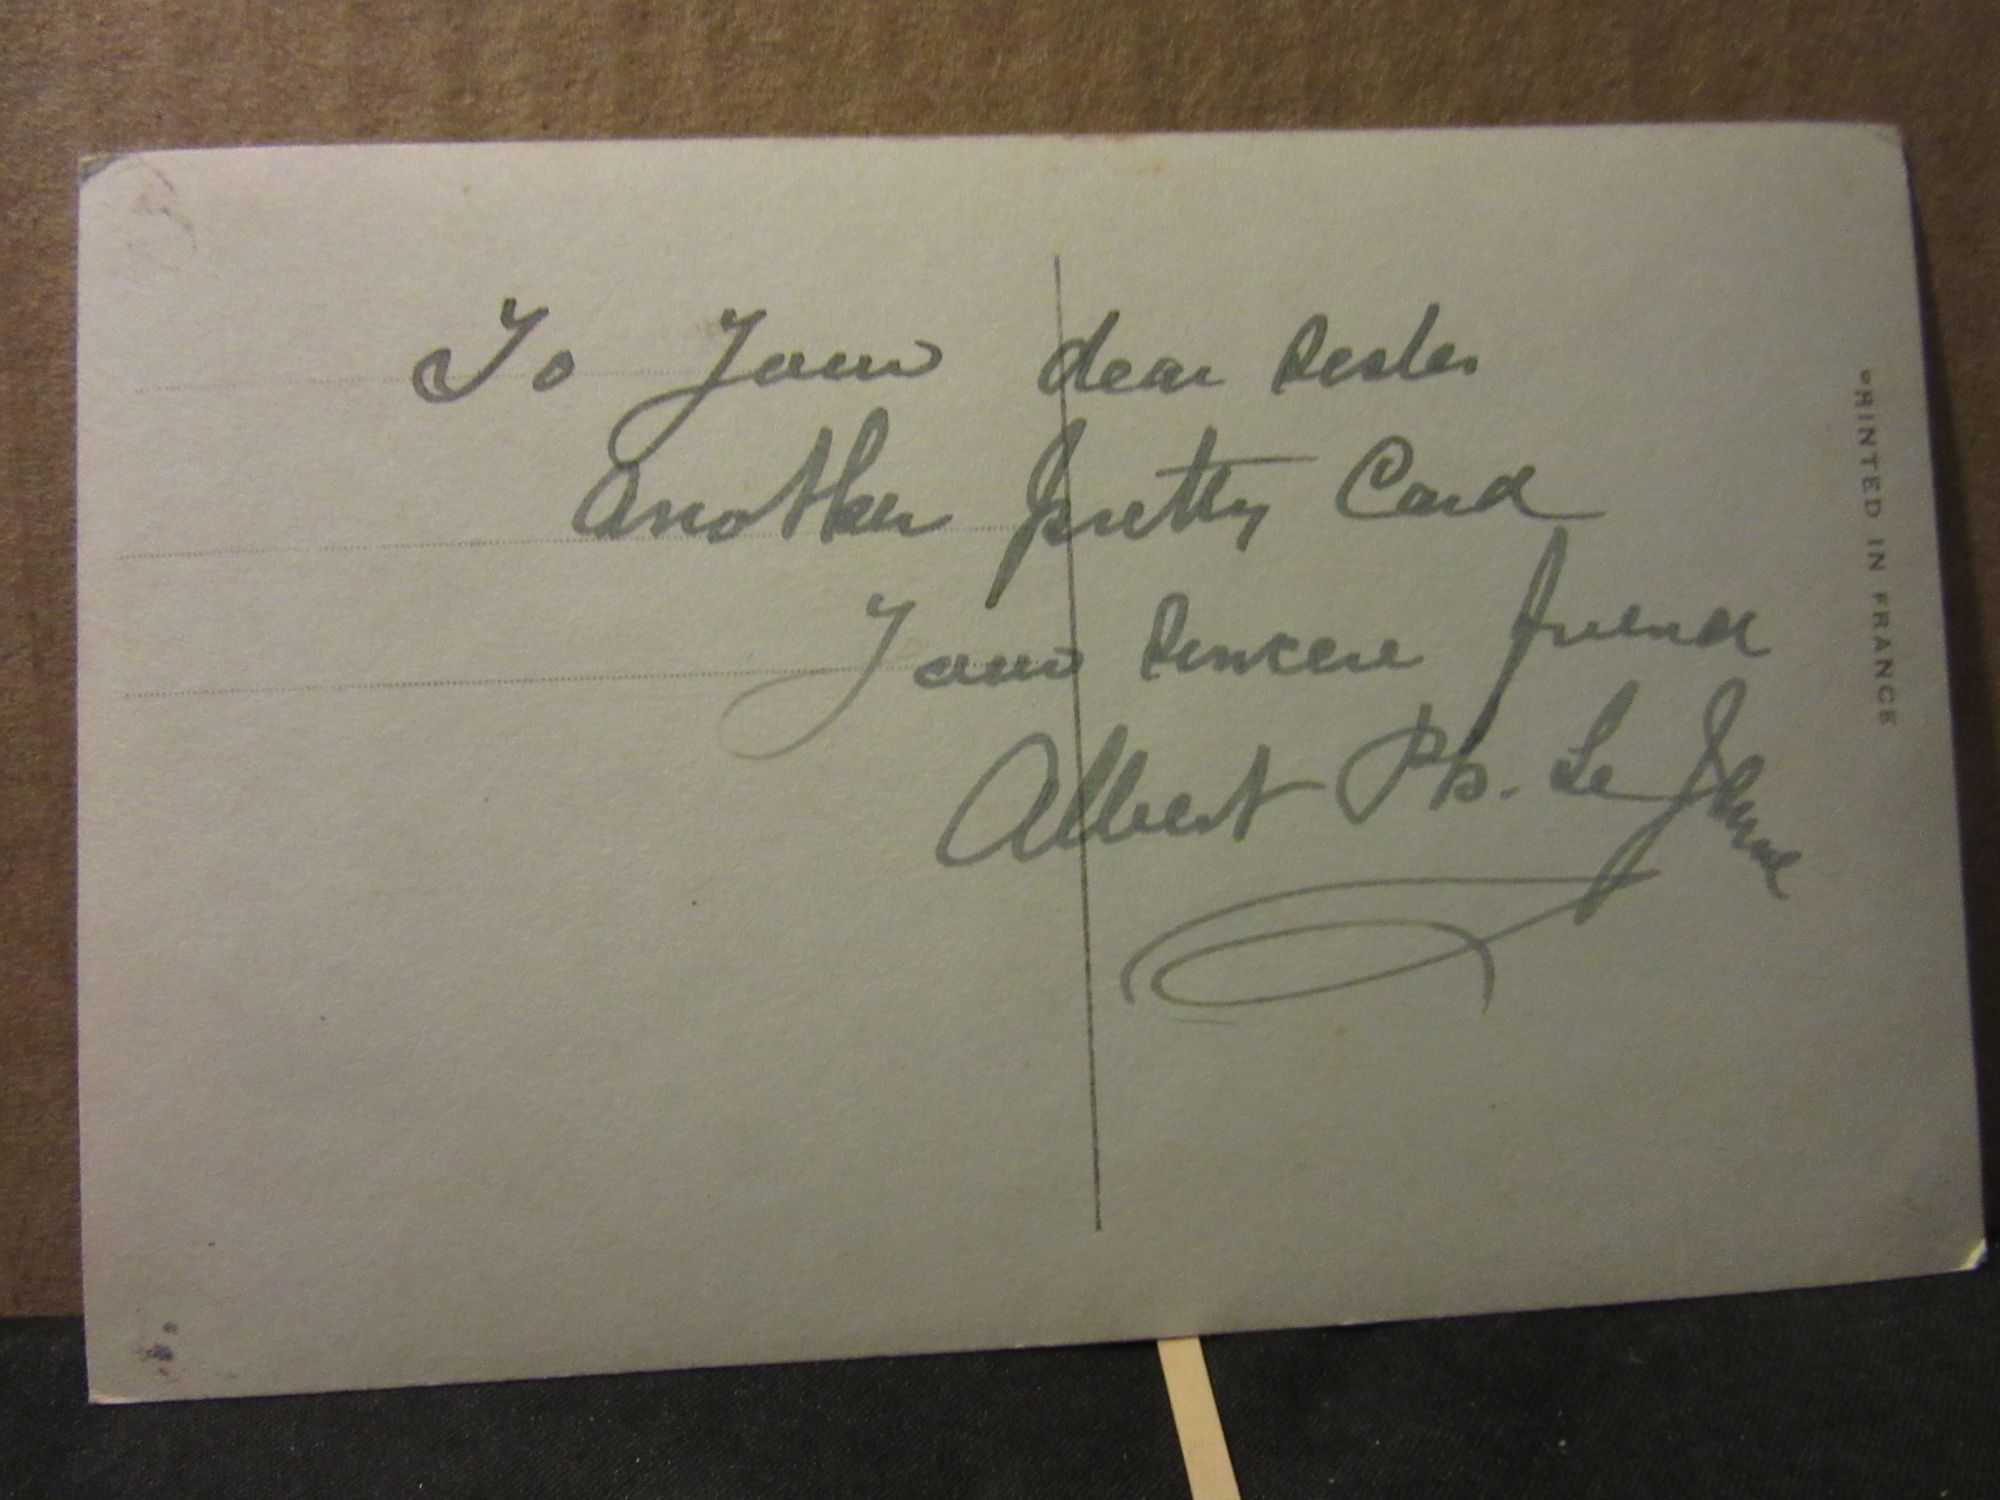 To Your dear Sister
another pretty Card
Your Sincere friend
Albert Ph. Le Jeune
PRINTED IN FRANCE